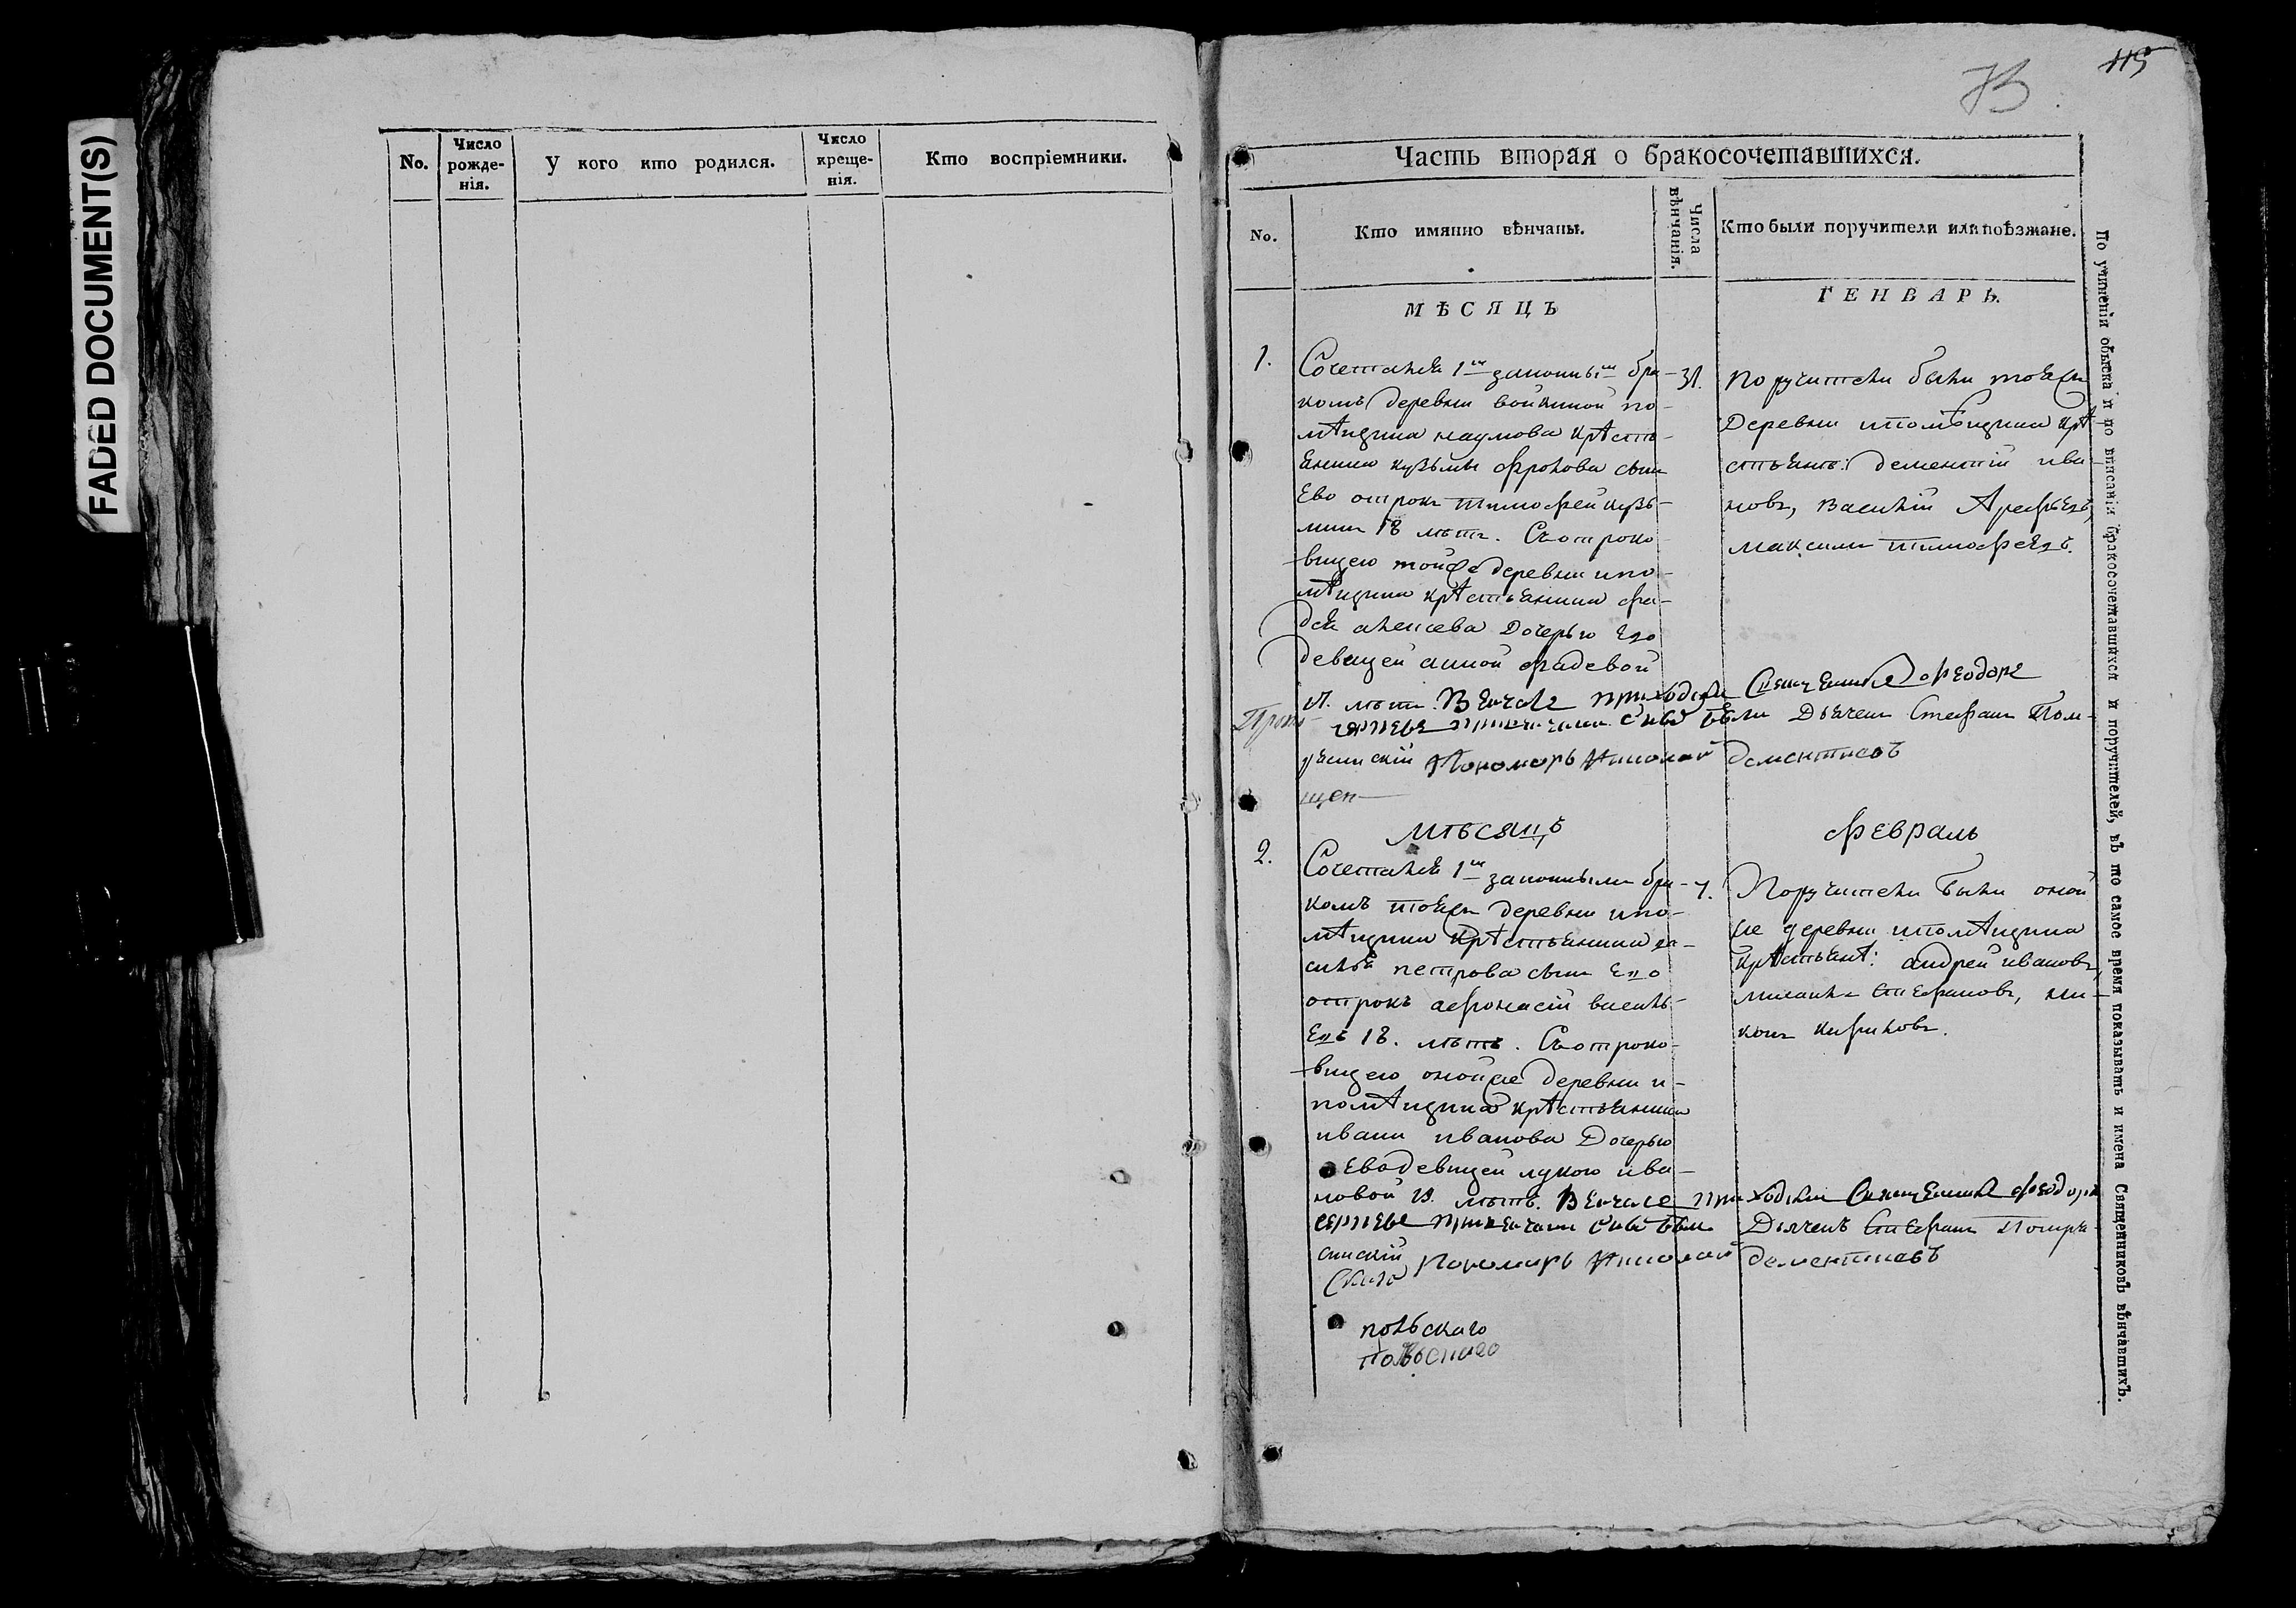 FADED DOCUMENT(S)
No.
Число рожде- нія.
У кого кто родился.
Число креще- нія.
Кто воспріемники.
115
Часть вторая о бракосочетавшихся.
No.
Кто имянно вѣнчаны.
Числа вѣнчанія.
Кто были поручители или поѣзжане.
МѢСЯЦЪ
ГЕНВАРЬ.
1.
Сочетался 1м законным бра-
комъ деревни войкиной по-
мѣщика наумова крѣсть-
янина кузьмы фролова сын
Ево отрокъ тимофей кузь-
мин 18 лѣтъ. Съ отроко-
вицею тойже деревни и по-
мѣщика крѣстьянина фа-
дея алексева дочерью Его
девицей анной фадевой
лѣтъ. Венчалъ приходски Священникъ феодоръ
при венчании были Дьячекъ Стефанъ
Пономарь Николай дементиевъ
31.
Поручители были тояжъ
деревни и помѣщика крѣ-
стьянѣ: дементій ива-
новъ, Василій Арефьевъ,
максимъ тимофеевъ.
мѣсяцъ
февраль
2.
Сочетался 1м законнымъ бра-
комъ тояжъ деревни и по-
мѣщика крѣстьянина ва-
силья петрова сын Его
отрокъ афонасій василь-
Евъ 18. лѣтъ. Съ отроко-
вицею онойже деревни и
помѣщика крѣстьянина
ивана иванова дочерью
Ево девицей лукою ива-
новой лѣтъ. Венчалъ приходски Священникъ феодоръ
при венчании были Дьячекъ Стефанъ
Пономарь Николай дементиевъ
7.
Поручители были оной
же деревни и помѣщика
крѣстьянѣ: андрей ивановъ,
михаилъ Стефановъ, ни-
конъ кириловъ.
польскаго
польскаго
По учиненіи обыска и по вписаніи бракосочетавшихся и поручителей, въ то самое время показывать и имена Священниковъ вѣнчавшихъ.